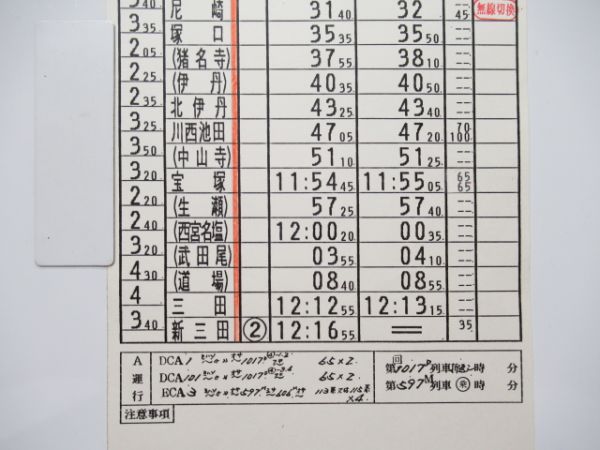 3 40 尼 崎 31 40 32 -- 45 無線切換
3 35 塚 口 35 35 35 50 --
2 05 (猪名寺) 37 55 38 10 --
2 25 (伊 丹) 40 35 40 50 --
2 35 北伊丹 43 25 43 40 --
3 25 川西池田 47 05 47 20 70 100
3 50 (中山寺) 51 10 51 25 --
3 20 宝 塚 11:54 45 11:55 05 65 65
2 20 (生 瀬) 57 25 57 40 --
2 40 (西宮名塩) 12:00 20 00 35 --
3 20 (武田尾) 03 55 04 10 --
4 30 (道 場) 08 40 08 55 --
4 三 田 12:12 55 12:13 15 --
3 40 新三田 ② 12:16 55 ＝ 35
A 運行
DCA1 1017D 65×2.
DCA101 1017D 65×2.
ECA3 597M
回
第1017D列車 時 分
第597M列車 乗 時 分
注意事項